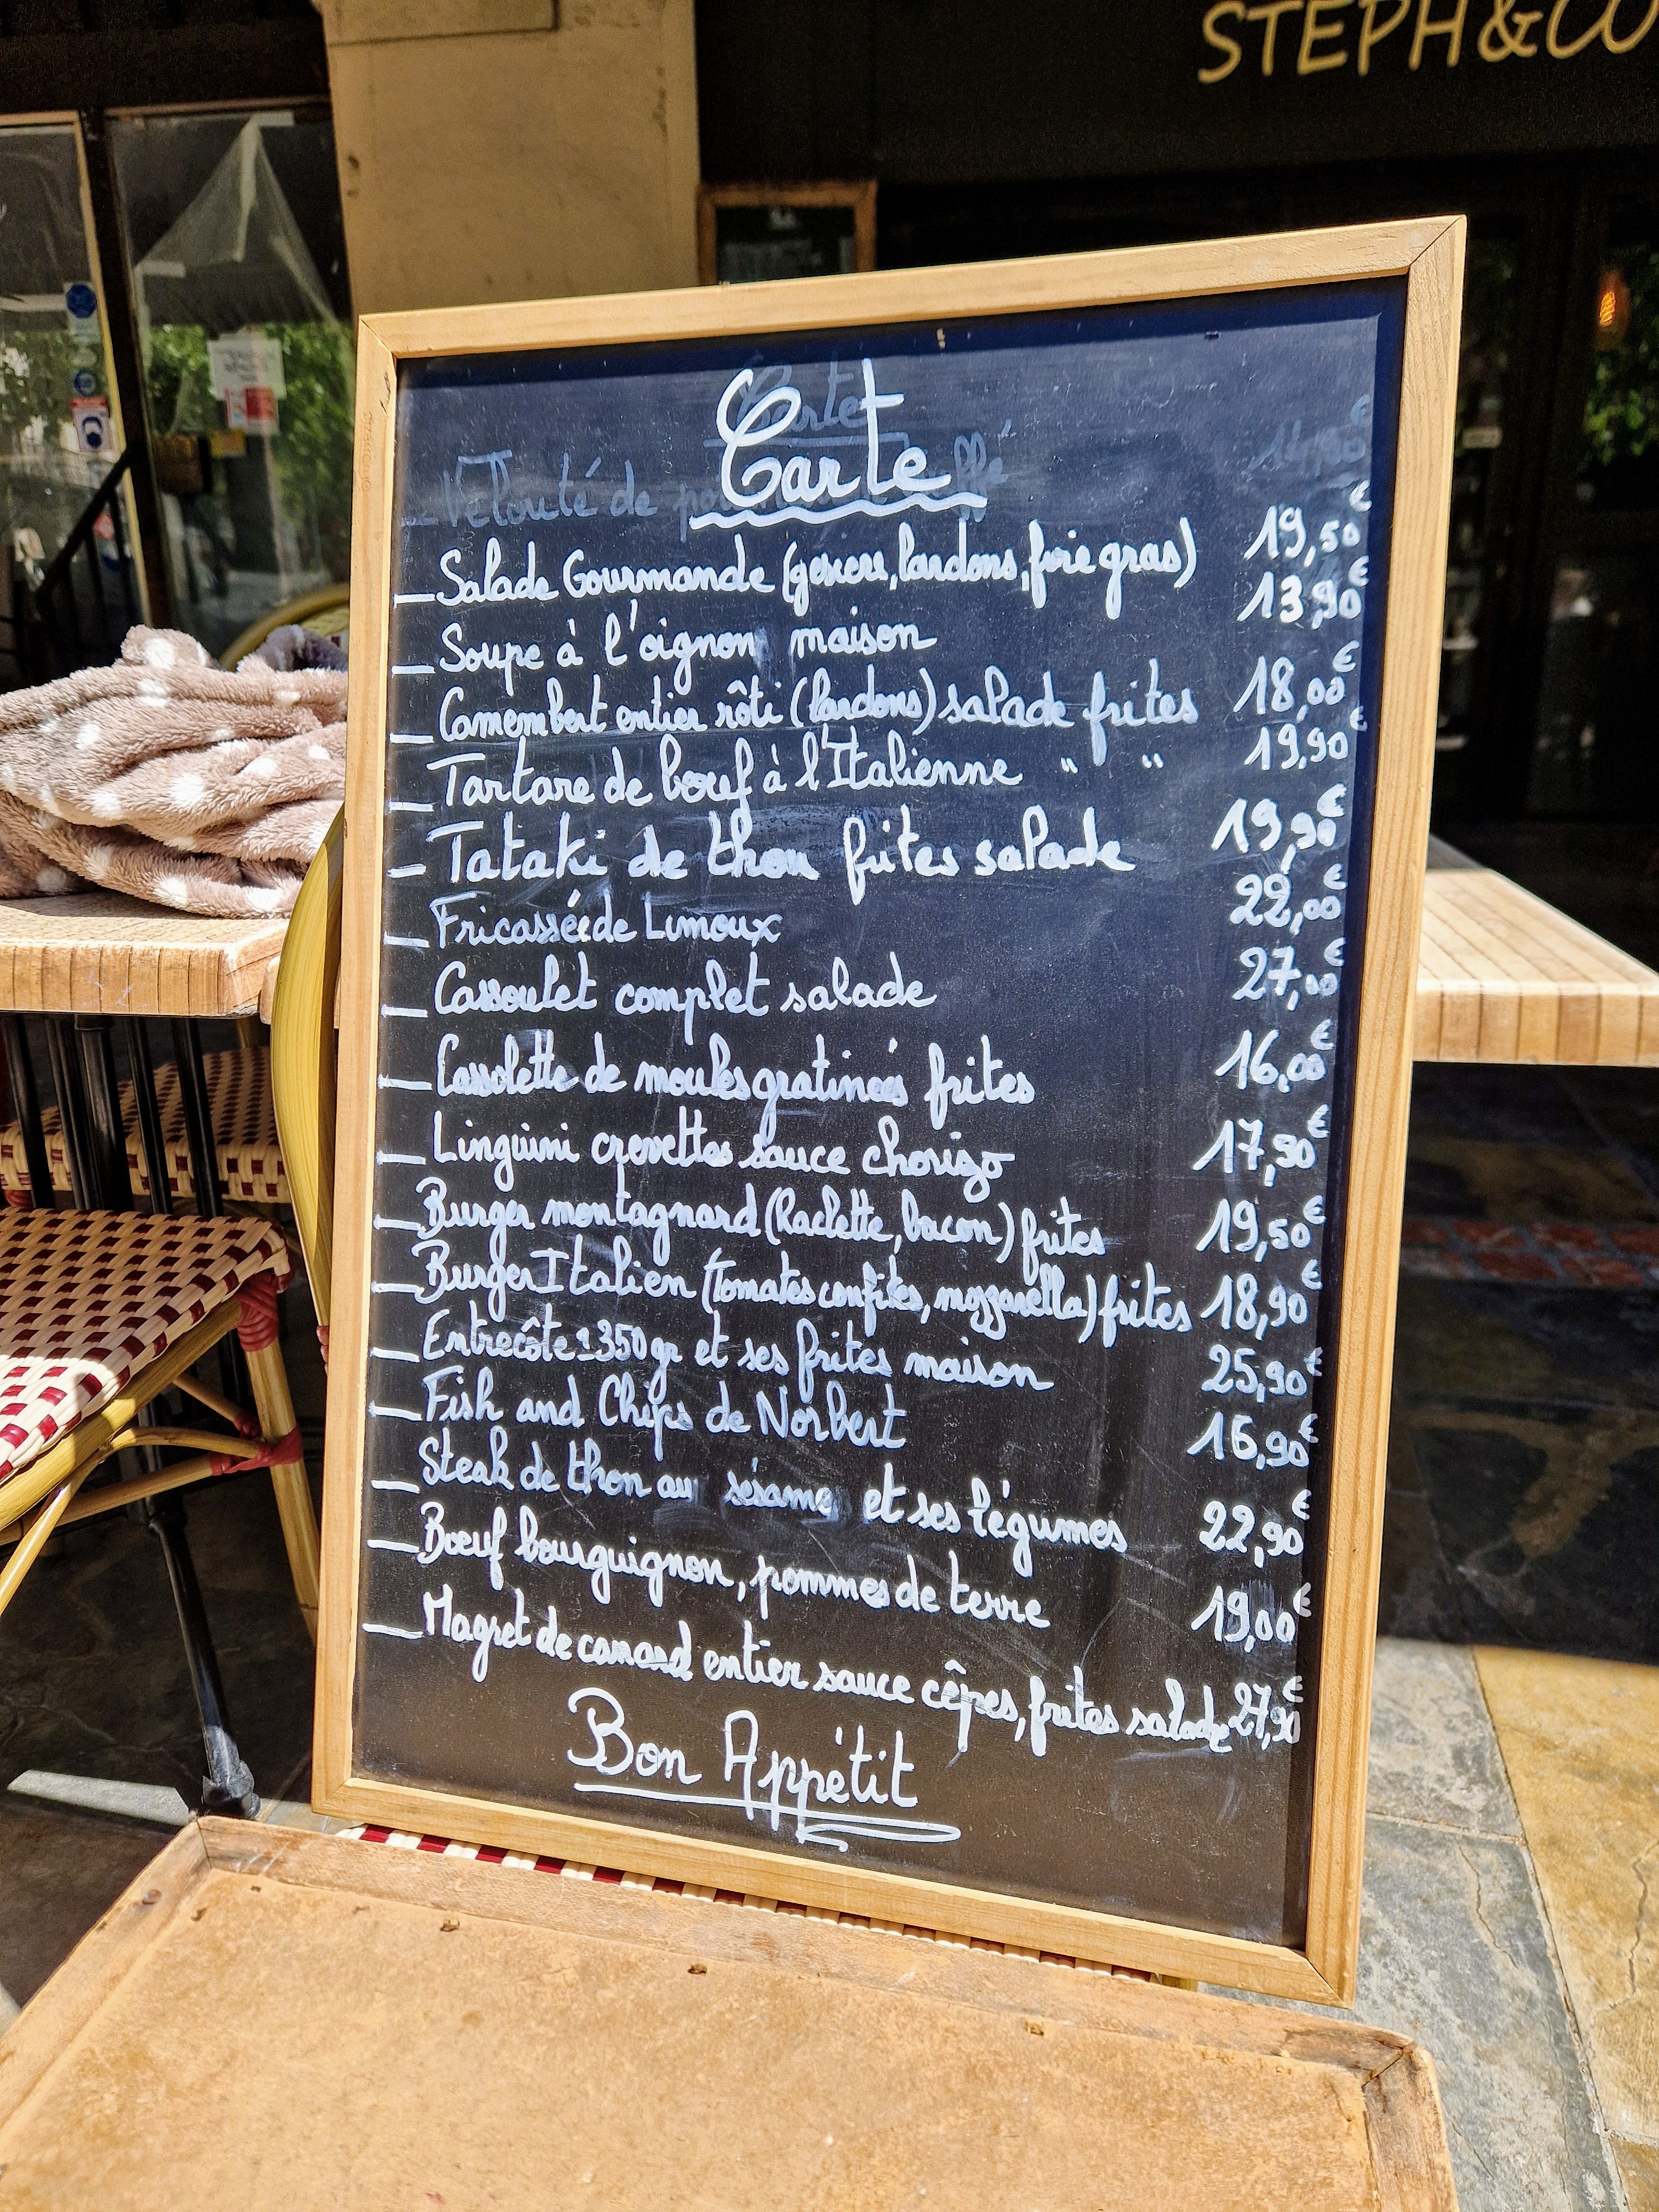 STEPH&CO
Carte
Velouté de
Salade Gourmande (gesiers, lardons, foie gras) 19,50€
Soupe à l'oignon maison 13,90€
Camembert entier rôti (lardons) salade frites 18,00€
Tartare de bœuf à l'Italienne " " 19,90€
Tataki de thon frites salade 19,90€
Fricassée de Limoux 22,00€
Cassoulet complet salade 27,00€
Cassolette de moules gratinées frites 16,00€
Linguini crevettes sauce chorizo 17,90€
Burger montagnard (Raclette, bacon) frites 19,50€
Burger Italien (Tomates confites, mozzarella) frites 18,90€
Entrecôte ± 350gr et ses frites maison 25,90€
Fish and Chips de Norbert 16,90€
Steak de thon au sésame et ses légumes 22,90€
Bœuf bourguignon, pommes de terre 19,00€
Magret de canard entier sauce cêpes, frites salade 27,90€
Bon Appétit